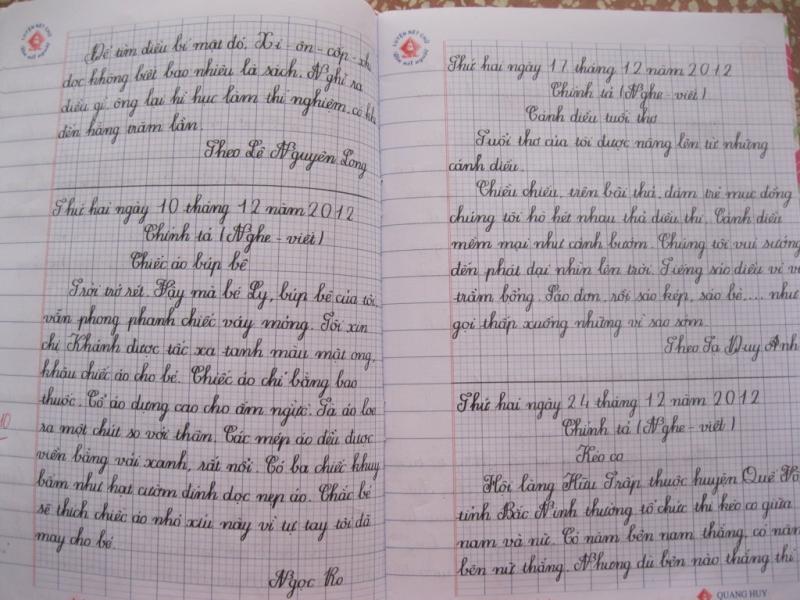 LUYỆN NÉT CHỮ
RÈN NẾT NGƯỜI
Để tìm điều bí mật đó, Xi-ôn-cốp-xki
đọc không biết bao nhiêu là sách. Nghĩ ra
điều gì, ông lại hì hục làm thí nghiệm, có khi
đến hàng trăm lần.
Theo Lê Nguyên Long
Thứ hai ngày 10 tháng 12 năm 2012
Chính tả (Nghe - viết)
Chiếc áo búp bê
Trời trở rét. Vậy mà bé Ly, búp bê của tôi
vẫn phong phanh chiếc váy mỏng. Tôi xin
chị Khánh được tấc xa tanh màu mật ong,
khâu chiếc áo cho bé. Chiếc áo chỉ bằng bao
thuốc. Cổ áo dựng cao cho ấm ngực. Tà áo loe
ra một chút so với thân. Các mép áo đều được
viền bằng vải xanh, rất nổi. Có ba chiếc khuy
bấm như hạt cườm đính dọc nẹp áo. Chắc bé
sẽ thích chiếc áo nhỏ xíu này vì tự tay tôi đã
may cho bé.
Ngọc Ro
10
LUYỆN NÉT CHỮ
RÈN NẾT NGƯỜI
Thứ hai ngày 17 tháng 12 năm 2012
Chính tả (Nghe - viết)
Cánh diều tuổi thơ
Tuổi thơ của tôi được nâng lên từ những
cánh diều.
Chiều chiều, trên bãi thả, đám trẻ mục đồng
chúng tôi hò hét nhau thả diều thi. Cánh diều
mềm mại như cánh bướm. Chúng tôi vui sướng
đến phát dại nhìn lên trời. Tiếng sáo diều vi vu
trầm bổng. Sáo đơn, rồi sáo kép, sáo bè,... như
gọi thấp xuống những vì sao sớm.
Theo Tạ Duy Anh
Thứ hai ngày 24 tháng 12 năm 2012
Chính tả (Nghe - viết)
Kéo co
Hội làng Hữu Trấp thuộc huyện Quế Võ
tỉnh Bắc Ninh thường tổ chức thi kéo co giữa
nam và nữ. Có năm bên nam thắng, có năm
bên nữ thắng. Nhưng dù bên nào thắng thì
QUANG HUY